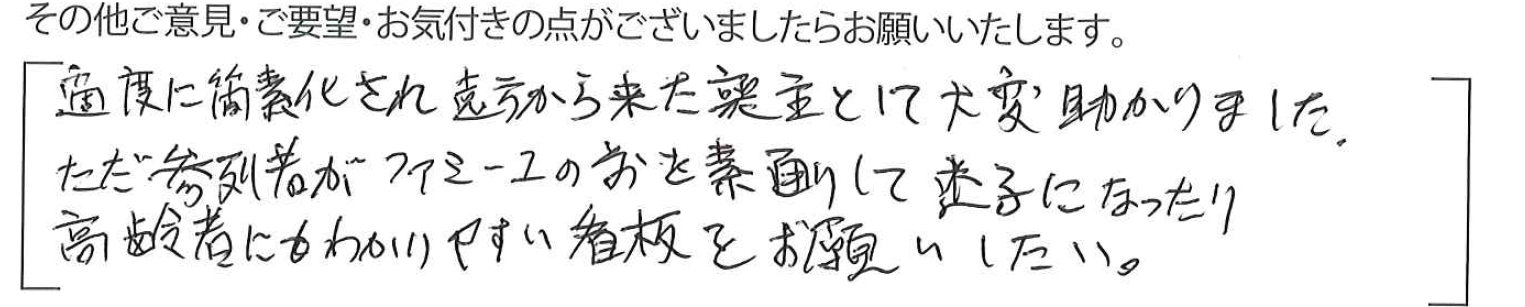 その他ご意見・ご要望・お気付きの点がございましたらお願いいたします。
適度に簡素化され遠方から来た喪主として大変助かりました。
ただ参列者がファミーユの前を素通りして迷子になったり
高齢者にもわかりやすい看板をお願いしたい。